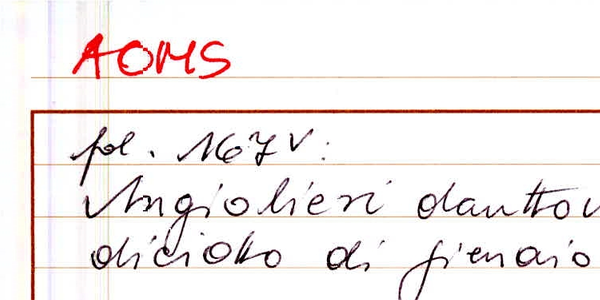 AOMS
fol. 167v:
Angiolieri dautto
diciotto di gienaio